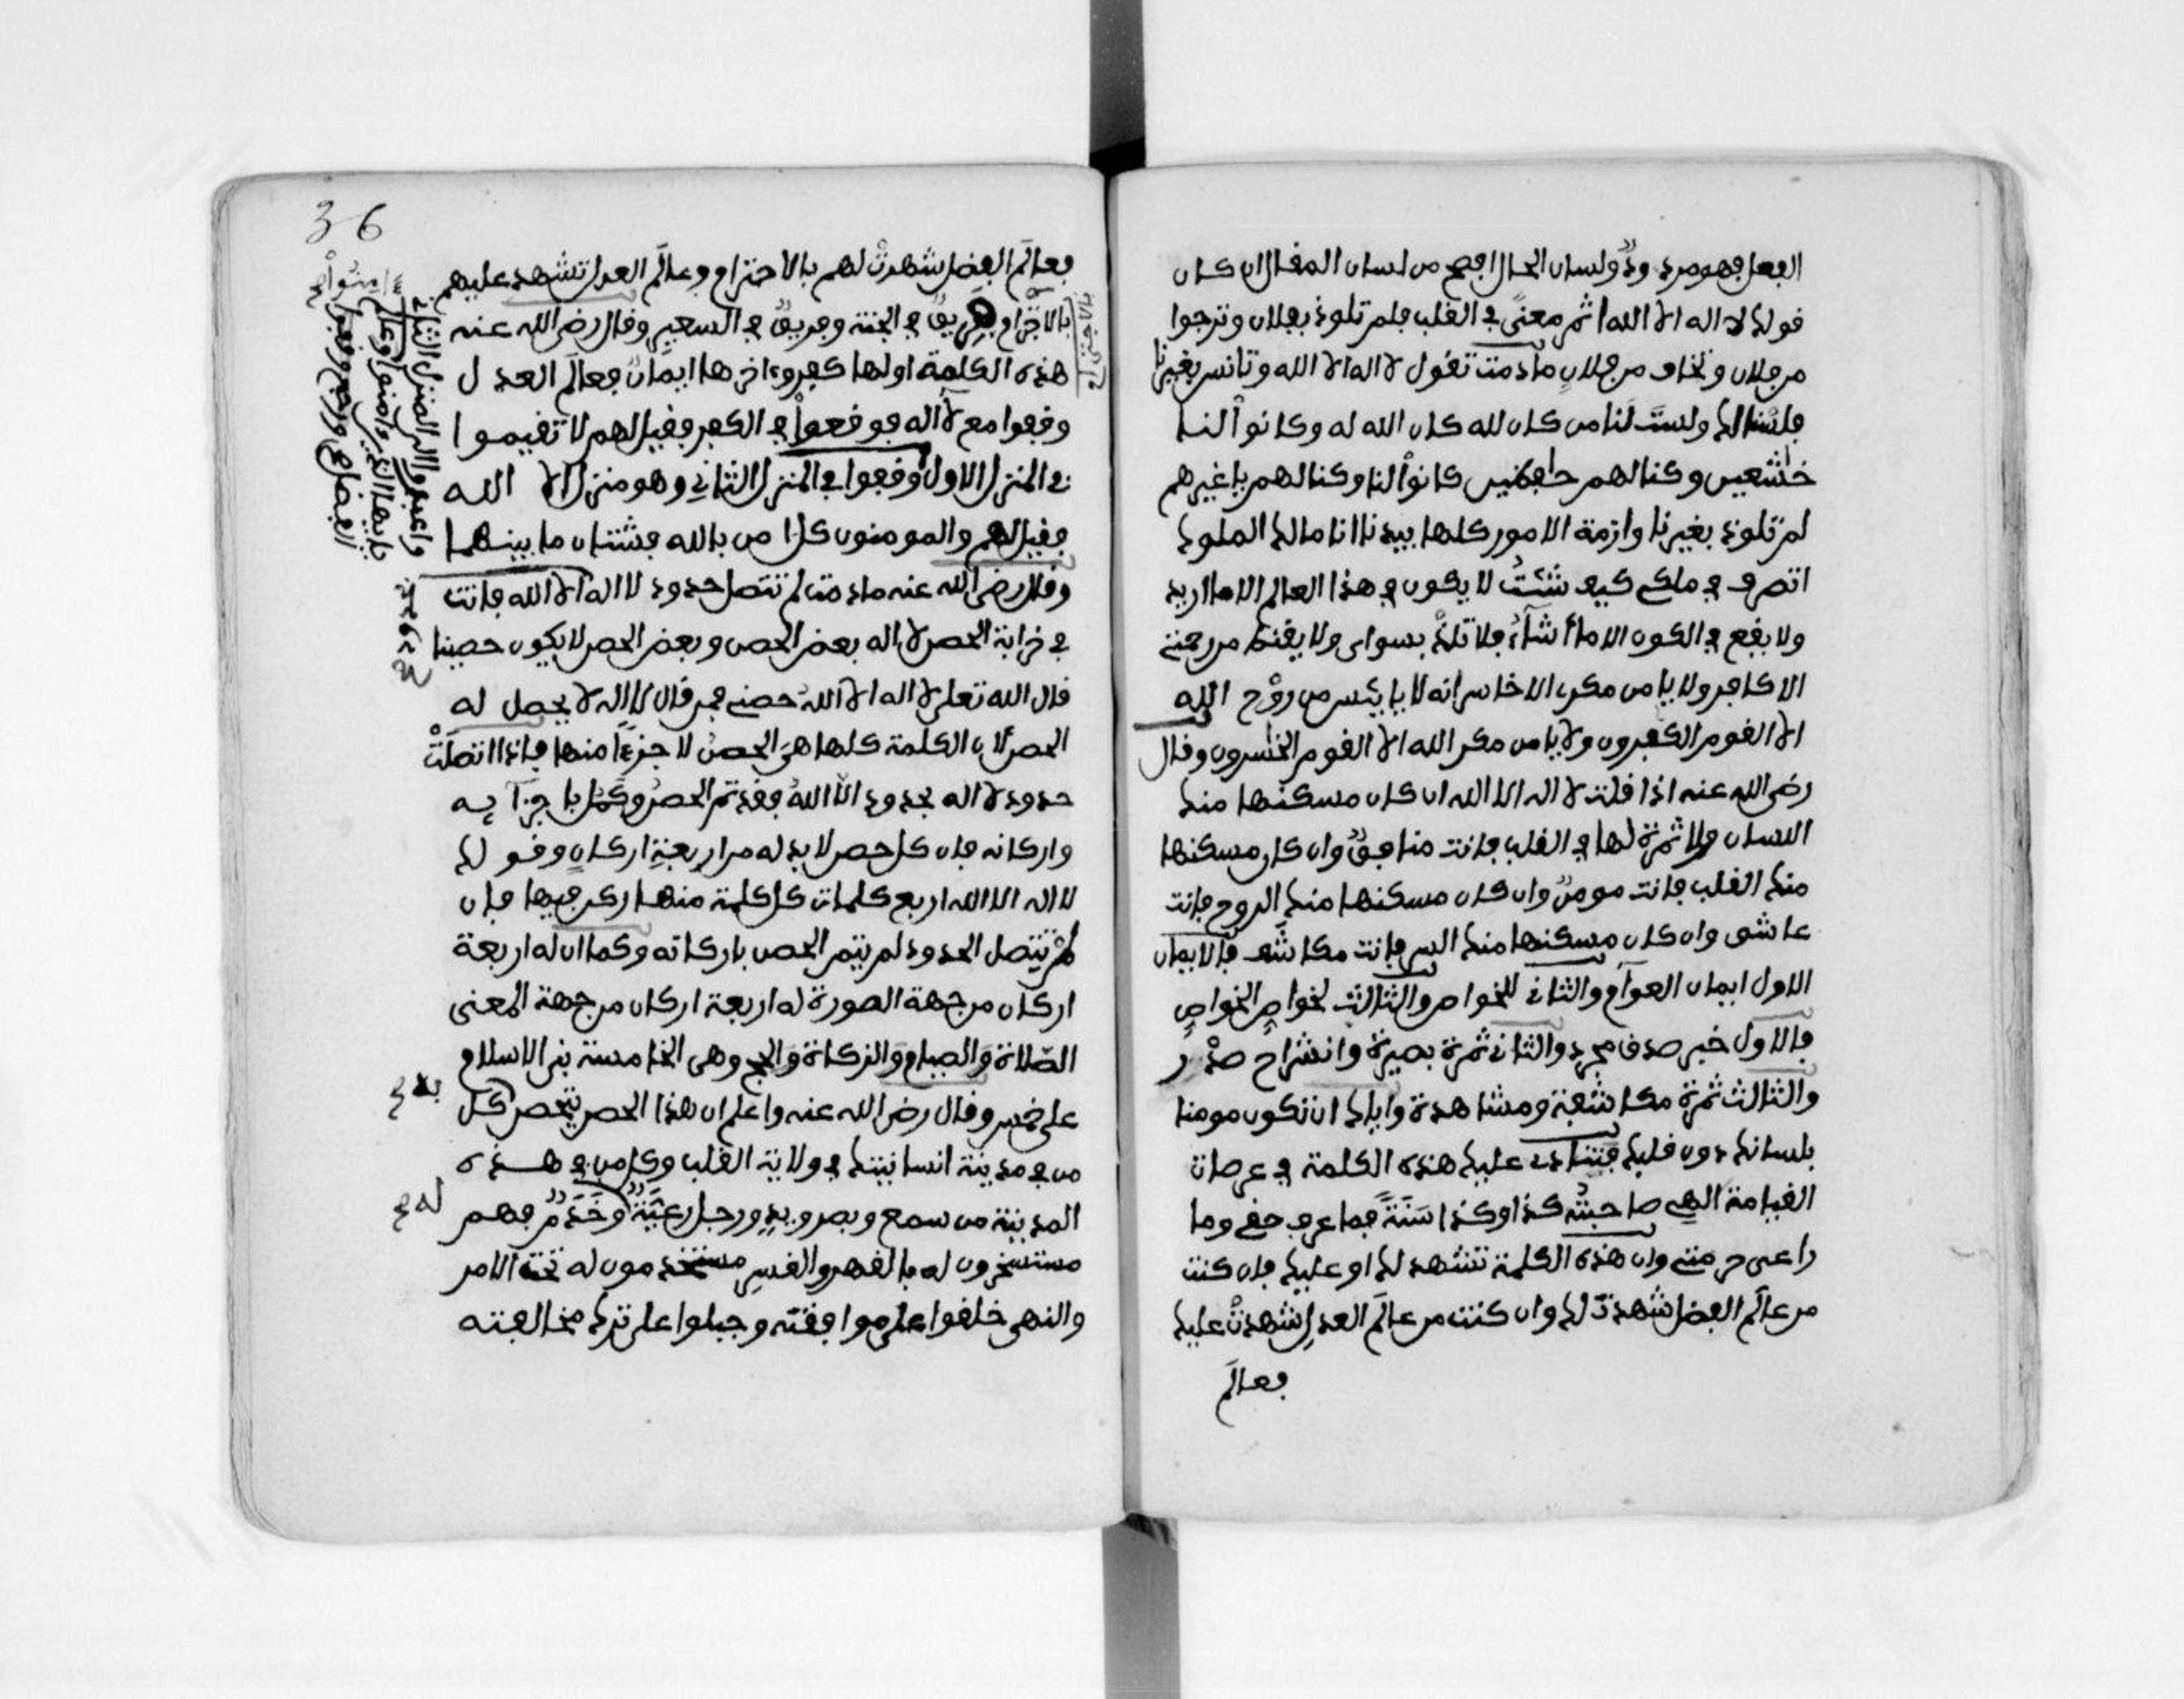 الفعل فهو مردود ولسان الحال افصح من لسان المقال ان كان
قولك لا اله الا الله اثم معنى في القلب فلم تلوذ بفلان وترجوا
من فلان وتخاف من فلان ما دمت تقول لا اله الا الله وتانس بغيرنا
فلسنا لك ولست لنا من كان لله كان الله له وكانوا لنا
خاشعين وكنا لهم حافظين كانوا لنا وكنا لهم يا غيرهم
لم تلوذ بغيرنا وازمة الامور كلها بيدنا انا مالك الملوك
اتصرف في ملكي كيف شئت لا يكون في هذا العالم الا ما اريد
ولا يقع في الكون الا ما أشاء فلا تلذ بسواى ولا يقنط من رحمتي
الا كافر ولا يامن مكرى الا خاسر انه لا يايئس من روح الله
الا القوم الكفرون ولا يامن مكر الله الا القوم الخسرون وقال
رضى الله عنه اذا قلت لا اله الا الله ان كان مسكنها منك
اللسان ولا ثمرة لها في القلب فانت منافق وان كان مسكنها
منك القلب فانت مومن وان كان مسكنها منك الروح فانت
عاشق وان كان مسكنها منك السر فانت مكاشف فالايمان
الاول ايمان العوام والثاني للخواص والثالث لخواص الخواص
فالاول خبر صدق مجرد والثاني ثمرة بصيرة وانشراح صدر
والثالث ثمرة مكاشفة ومشاهدة واياك ان تكون مومنا
بلسانك دون قلبك فتنادى عليك هذه الكلمة في عرصات
القيامة الهي صاحبته كذا وكذا سنة فما عرف حقي وما
راعى حرمتي وان هذه الكلمة تشهد لك او عليك فان كنت
من عالم الفضل شهدت لك وان كنت من عالم العدل شهدت عليك
فعالم
36
فعالم الفضل شهدت لهم بالاحترام وعالم العدل تشهد عليهم
بالاجرام فريق في الجنة وفريق في السعير وقال رضى الله عنه
هذه الكلمة اولها كفر وءاخرها ايمان فعالم العدل
وقفوا مع لا اله فوقعوا في الكفر فقيل لهم لا تقيموا
في المنزل الاول وقفوا في المنزل الثاني وهو منزل الا الله
فقيل لهم والمومنون كل امن بالله فشتان ما بينهما
وقال رضى الله عنه ما دمت لم تتصل حدود لا اله الا الله فانت
في خرابة الحصن لا اله بعض الحصن وبعض الحصن لا يكون حصينا
قال الله تعلى لا اله الا الله حصني فمن قال لا اله لا يحصل له
الحصن لان الكلمة كلها هي الحصن لا جزءا منها فاذا اتصلت
حدود لا اله بحدود الا الله فقد تم الحصن وكمل باجزآيه
واركانه فان كل حصن لا بد له من اربعة اركان وقولك
لا اله الا الله اربع كلمات كل كلمة منها ركن فيها فان
لم تتصل الحدود لم يتم الحصن باركانه وكما ان له اربعة
اركان من جهة الصورة له اربعة اركان من جهة المعنى
الصلاة والصيام والزكاة والحج وهى الخامسة بني الاسلام
على خمس وقال رضى الله عنه واعلم ان هذا الحصن يتحصن كل
من في مدينة انسانيتك في ولاية القلب وكل من في هذه
المدينة من سمع وبصر ويد ورجل رعية وخدم فهم
مستسخرون له بالقهر والقسر مستخدمون له تحت الامر
والنهى خلقوا على موافقته وجبلوا على ترك مخالفته
به صح
له صح